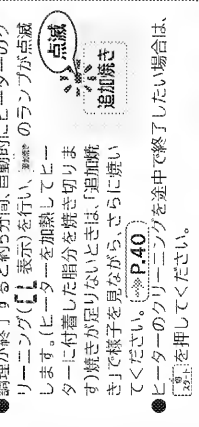 調理が終了すると約5分間、自動的にヒーターのク
リーニング( 表示)を行い、 のランプが点滅
します。(ヒーターを加熱してヒー
ターに付着した脂分を焼き切りま
す)焼きが足りないときは、「追加焼
き」で様子を見ながら、さらに焼い
てください。 P.40
点滅
追加焼き
●ヒーターのクリーニングを途中で終了したい場合は、
切 スタート を押してください。